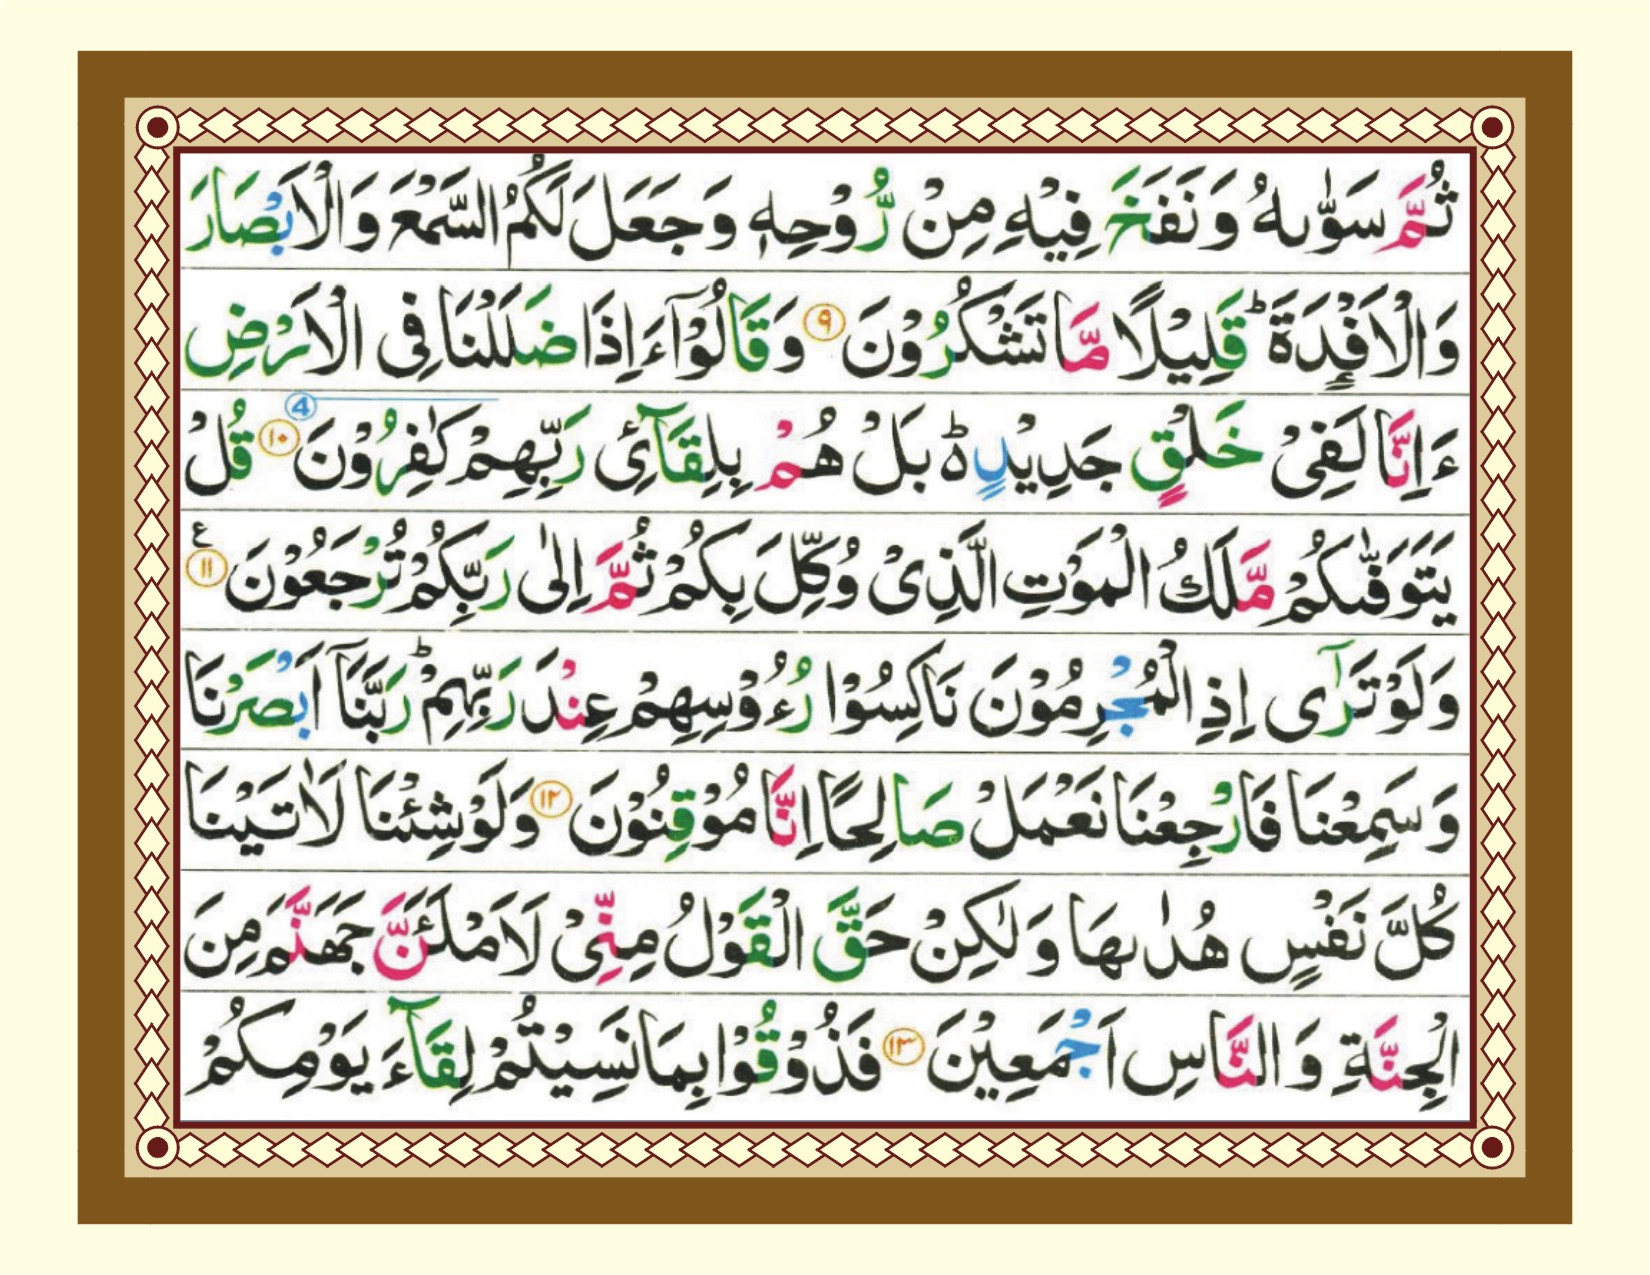 ثُمَّ سَوّٰىهُ وَ نَفَخَ فِیْهِ مِنْ رُّوْحِهٖ وَ جَعَلَ لَكُمُ السَّمْعَ وَ الْاَبْصَارَ
وَ الْاَفْـِٕدَةَ ؕ قَلِیْلًا مَّا تَشْكُرُوْنَ ۹ وَ قَالُوْۤا ءَاِذَا ضَلَلْنَا فِی الْاَرْضِ
ءَاِنَّا لَفِیْ خَلْقٍ جَدِیْدٍ ؕ۬ بَلْ هُمْ بِلِقَآئِ رَبِّهِمْ كٰفِرُوْنَ ۱۰ 4 قُلْ
یَتَوَفّٰىكُمْ مَّلَكُ الْمَوْتِ الَّذِیْ وُكِّلَ بِكُمْ ثُمَّ اِلٰی رَبِّكُمْ تُرْجَعُوْنَ ۱۱ ع
وَ لَوْ تَرٰۤی اِذِ الْمُجْرِمُوْنَ نَاكِسُوْا رُءُوْسِهِمْ عِنْدَ رَبِّهِمْ ؕ رَبَّنَاۤ اَبْصَرْنَا
وَ سَمِعْنَا فَارْجِعْنَا نَعْمَلْ صَالِحًا اِنَّا مُوْقِنُوْنَ ۱۲ وَ لَوْ شِئْنَا لَاٰتَیْنَا
كُلَّ نَفْسٍ هُدٰىهَا وَ لٰكِنْ حَقَّ الْقَوْلُ مِنِّیْ لَاَمْلَـَٔنَّ جَهَنَّمَ مِنَ
الْجِنَّةِ وَ النَّاسِ اَجْمَعِیْنَ ۱۳ فَذُوْقُوْا بِمَا نَسِیْتُمْ لِقَآءَ یَوْمِكُمْ